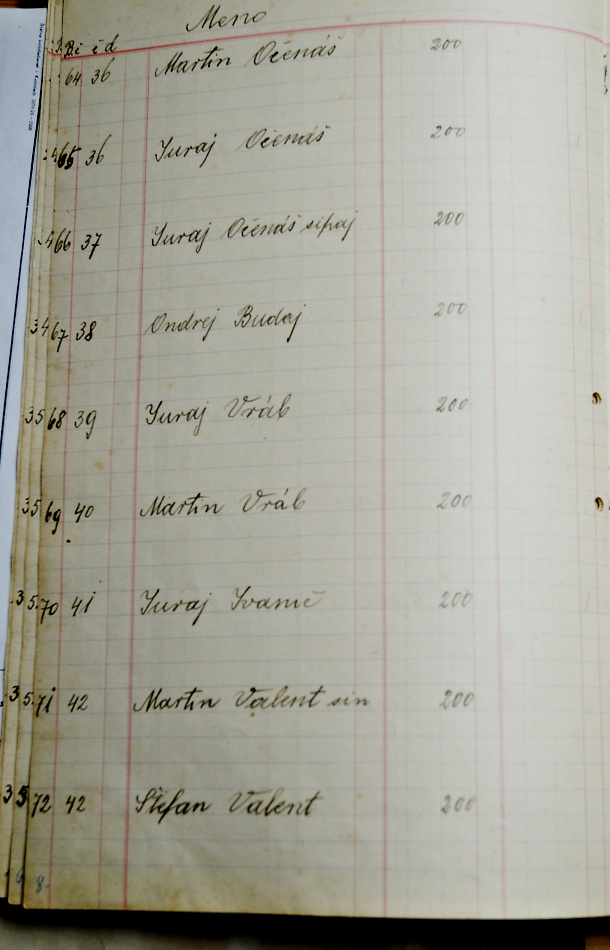 Meno
Bi č d
64 36 Martin Očenáš 200
65 36 Juraj Očenáš 200
66 37 Juraj Očenáš sipaj 200
67 38 Ondrej Budaj 200
68 39 Juraj Vráb 200
69 40 Martin Vráb 200
70 41 Juraj Ivanič 200
71 42 Martin Valent sin 200
72 42 Štefan Valent 200
8